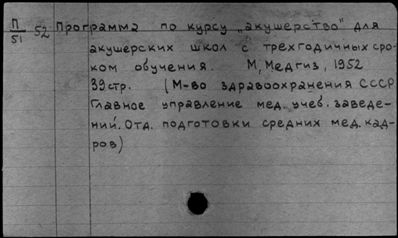 П/51 52 Программа по курсу „акушерство" для
акушерских школ с трехгодичных сро-
ком обучения. М, Медгиз, 1952
39стр. (М-во здравоохранения СССР
Главное управление мед. учеб. заведе-
ний. Отд. подготовки средних мед. кад-
ров)